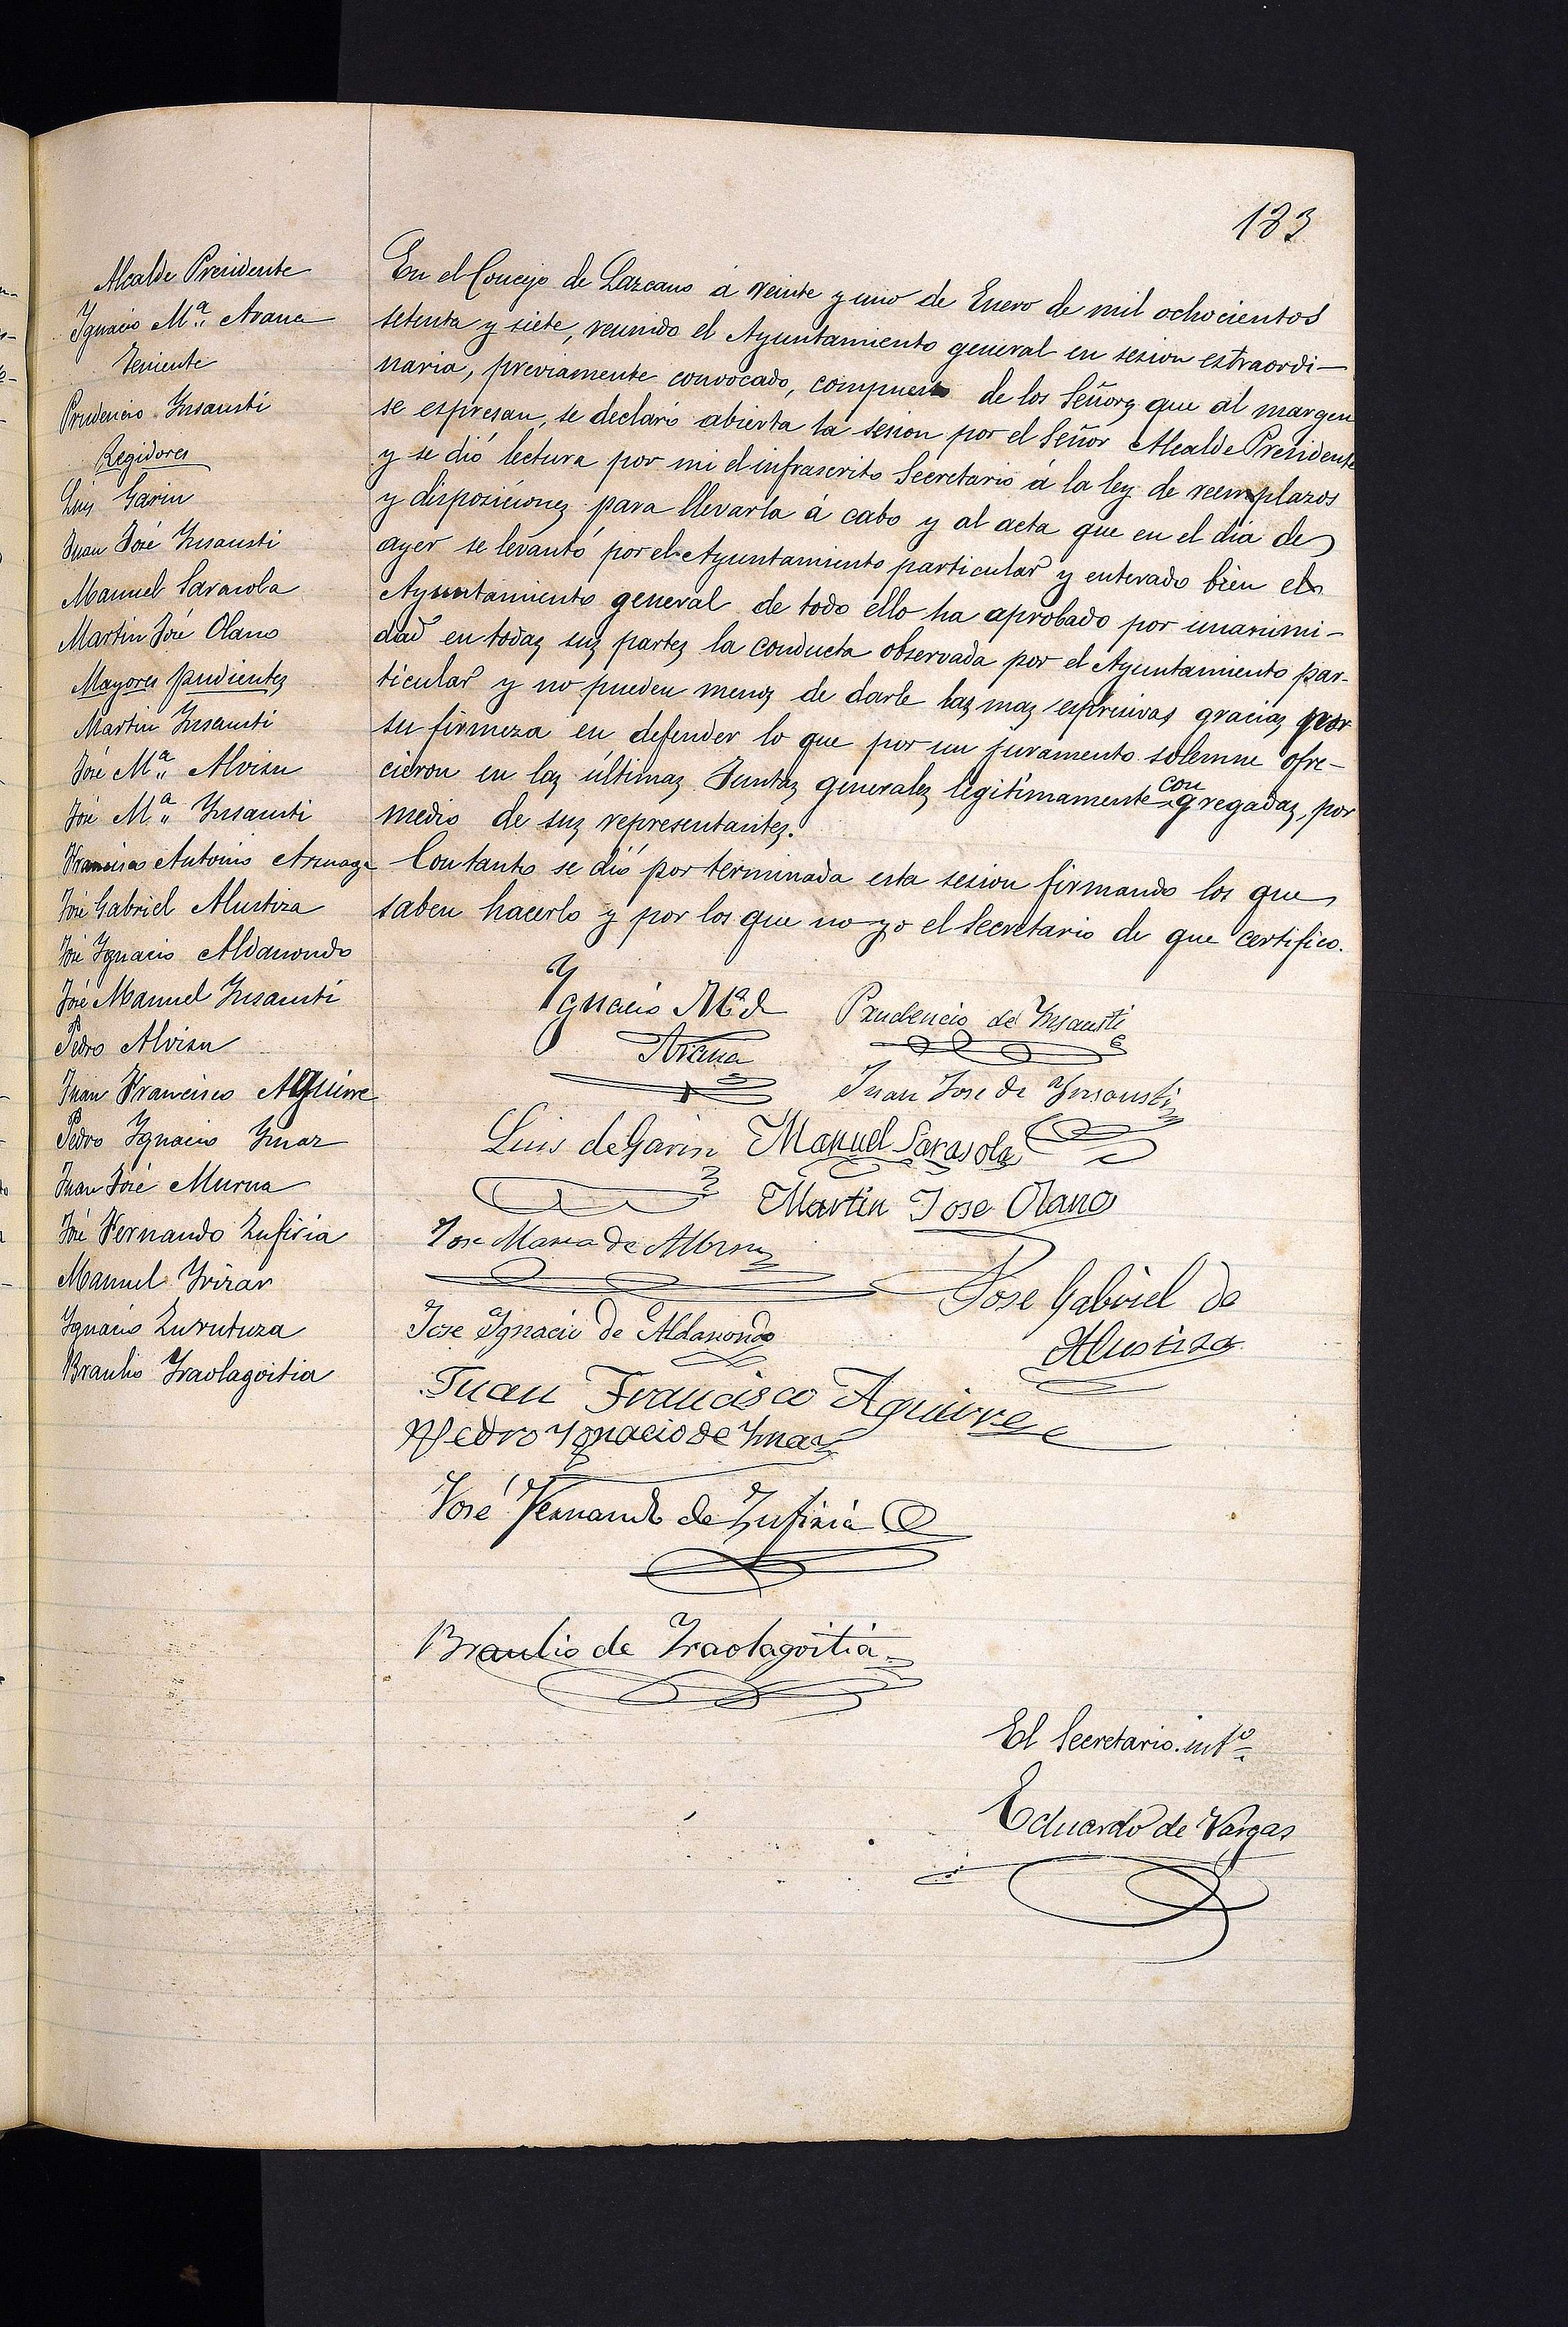 183
Alcalde Presidente
Ygnacio Mª Arana
Teniente
Prudencio Ynsausti
Regidores
Luis Garin
Juan José Ynsausti
Manuel Sarasola
Martin José Olano
Mayores pudientes
Martin Ynsausti
José Mª Alvisu
José Mª Ynsausti
Francisco Antonio Arsuaga
José Gabriel Alustiza
José Ygnacio Aldanondo
José Manuel Ynsausti
Pedro Alvisu
Juan Francisco Aguirre
Pedro Ygnacio Ymaz
Juan José Murua
José Fernando Zufiria
Manuel Yrizar
Ygnacio Zurutuza
Braulio Yraolagoitia
En el Concejo de Lazcano á veinte y uno de Enero de mil ochocientos
setenta y siete, reunido el Ayuntamiento general en sesion estraordi-
naria, previamente convocado, compuesto de los Señores que al margen
se espresan, se declaró abierta la sesion por el Señor Alcalde Presidente
y se dió lectura por mi el infrascrito Secretario á la ley de reemplazos
y disposiciones para llevarla á cabo y al acta que en el dia de
ayer se levantó por el Ayuntamiento particular y enterado bien el
Ayuntamiento general de todo ello ha aprobado por unanimi-
dad en todas sus partes la conducta observada por el Ayuntamiento par-
ticular y no pueden menos de darle las mas espresivas gracias por
su firmeza en defender lo que por un juramento solemne ofre-
cieron en las últimas Juntas generales legitimamente congregadas, por
medio de sus representantes.
Con tanto se dió por terminada esta sesion firmando los que
saben hacerlo y por los que no yo el Secretario de que certifico.
Ygnacio Mª d
Arana
Prudencio de Ynsausti
Juan Jose de Ynsausti
Luis de Garin
Manuel Sarasola
Martin Jose Olano
Jose Maria de Albisu
Jose Gabriel de
Alustiza
Jose Ygnacio de Aldanondo
Juan Francisco Aguirre
Pedro Ygnacio de Ymaz
José Fernando de Zufiria
Braulio de Yraolagoitia
El Secretario intº
Eduardo de Vargas